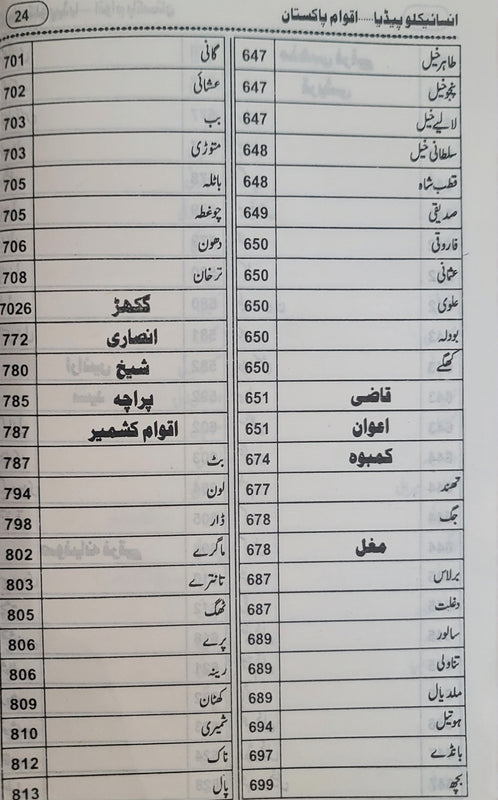 انسائیکلوپیڈیا.....اقوام پاکستان
24
طاہر خیل 647
پنجو خیل 647
لالیے خیل 647
سلطانی خیل 648
قطب شاہ 648
صدیقی 649
فاروقی 650
عثمانی 650
علوی 650
بودلہ 650
کھگے 650
قاضی 651
اعوان 651
کمبوہ 674
تھند 677
جگ 678
مغل 678
برلاس 687
دغلت 687
سالور 689
تناولی 689
ملدیال 689
ہوتیل 694
بانڈے 697
بچھ 699
گائی 701
عشائی 702
بب 703
متوڑی 703
باٹلہ 705
چوغطہ 705
دھون 706
ترخان 708
گکھڑ 7026
انصاری 772
شیخ 780
پراچہ 785
اقوام کشمیر 787
بٹ 787
لون 794
ڈار 798
ماگرے 802
تانترے 803
ٹھگ 805
پرے 806
رینہ 806
کھٹان 809
شمیری 810
ناک 812
پال 813